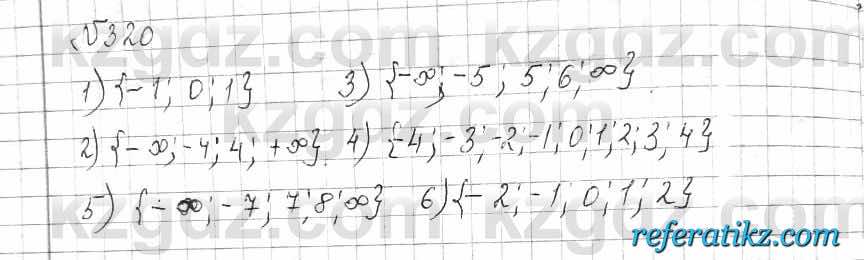 №320
1) {-1; 0; 1} 3) {-∞; -5; 5; 6; ∞}
2) {-∞; -4; 4; +∞} 4) {-4; -3; -2; -1; 0; 1; 2; 3; 4}
5) {-∞; -7; 7; 8; ∞} 6) {-2; -1; 0; 1; 2}
kzgdz.com
referatikz.com